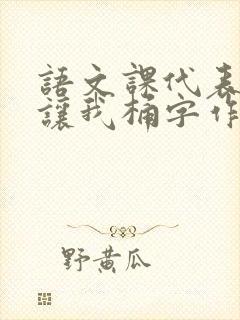 語文課代表
讓我桶字作
野黃瓜